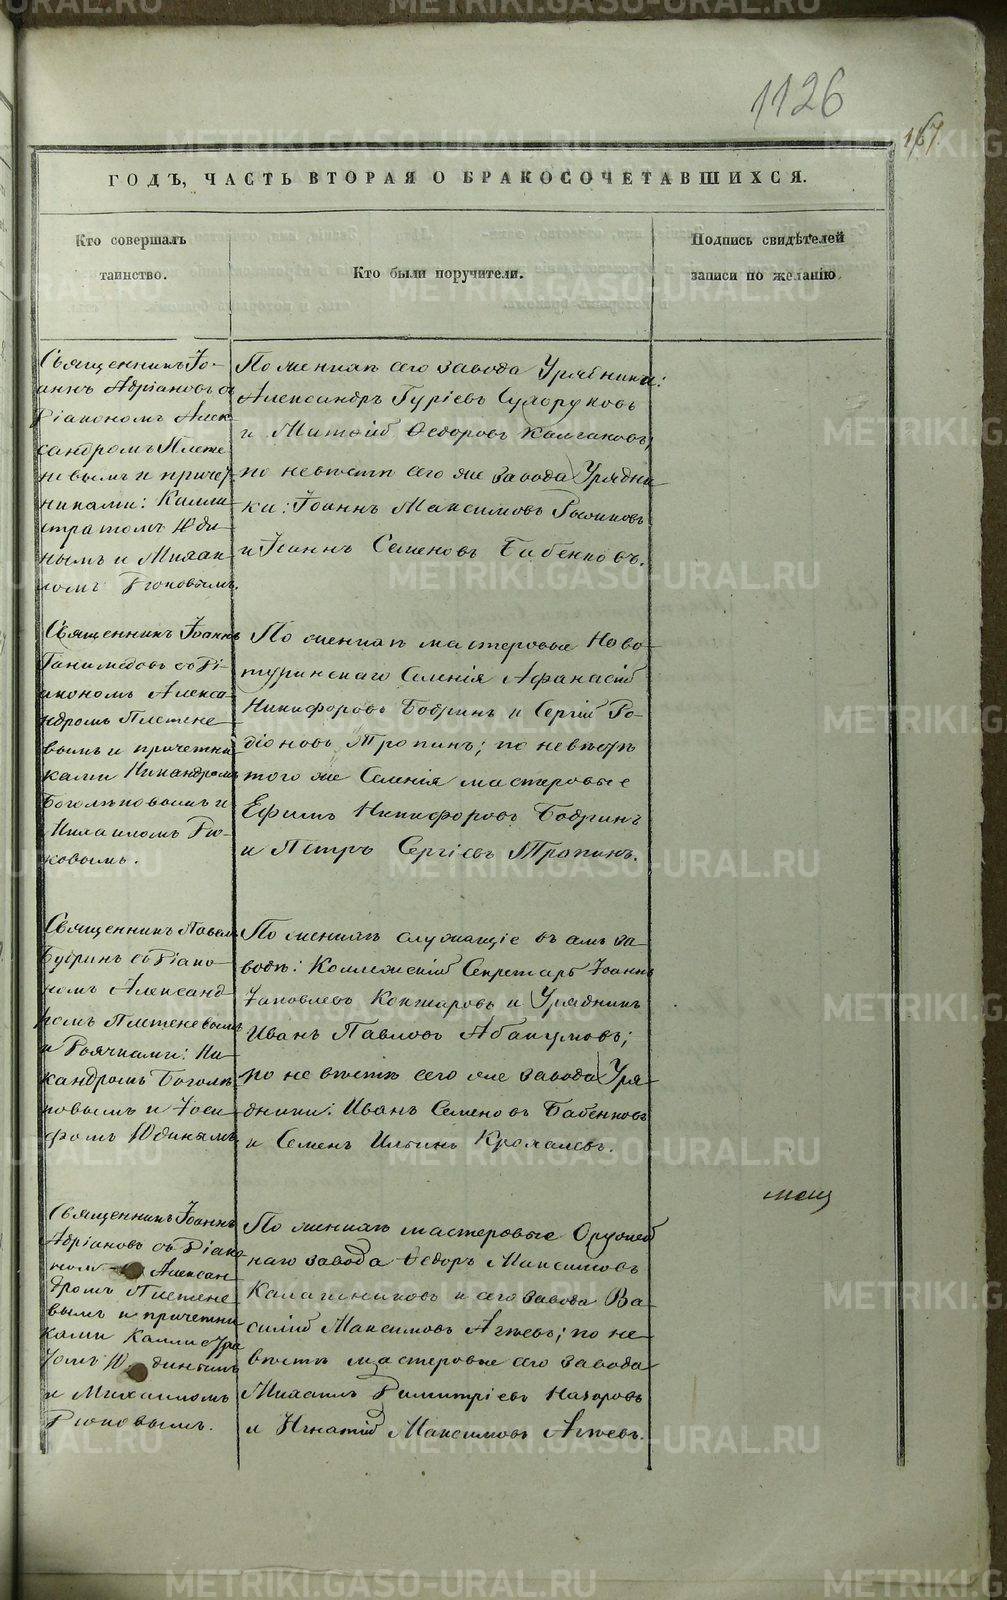 1126
167
ГОДЪ, ЧАСТЬ ВТОРАЯ О БРАКОСОЧЕТАВШИХСЯ.
Кто совершалъ
таинство.
Кто были поручители.
Подпись свидѣтелей
записи по желанію.
Священникъ Іо-
аннъ Адріановъ съ
Діакономъ Алек
сандромъ Плете
невымъ и причет
никами: Калли
стратомъ Юди
нымъ и Михаи
ломъ
По женихѣ сего завода Урядники:
Александръ Гуріевъ Сухоруковъ
и Матѳій Ѳедоровъ Калгановъ;
по невѣстѣ сего же завода Урядни
ки: Іоаннъ Максимовъ
и Іоаннъ Семеновъ Бабенковъ.
Священникъ Іоаннъ
Ганимедовъ съ Ді-
акономъ Алекса
ндромъ Плетене
вымъ и причетни
ками Никандромъ
Боголѣповымъ и
Михаиломъ
По женихѣ мастеровые Ново-
туринскаго Селенія Афанасій
Никифоровъ Бобринъ и Сергій Ро-
діоновъ Тропинъ; по невѣстѣ
того же Селенія мастеровые
Ефимъ Никифоровъ Бобринъ
и Петръ Сергіевъ Тропинъ.
Священникъ Павелъ
Будринъ съ Діако-
номъ Александ
ромъ Плетеневымъ
и Дьячками: Ни-
кандромъ Боголѣ
повымъ и Іоси
фомъ Юдинымъ
По женихѣ служащіе въ семъ за-
водѣ: Коллежскій Секретарь Іоаннъ
Іаковлевъ Кокшаровъ и Урядникъ
Иванъ Павловъ Абакумовъ;
по невѣстѣ сего же завода Уря-
дники: Иванъ Семеновъ Бабенковъ
и Семенъ Ильинъ Крохалевъ.
Священникъ Іоаннъ
Адріановъ съ Діако
номъ Алексан
дромъ Плетене
вымъ и причетни
ками Каллистра
томъ Юдинымъ
и Михаиломъ
По женихѣ мастеровые Оружей
наго завода Ѳедоръ Максимовъ
Калашниковъ и сего завода Ва-
силій Максимовъ Агѣевъ; по не-
вѣстѣ мастеровые сего завода
Михаилъ Димитріевъ Назоровъ
и Игнатій Максимовъ Агѣевъ.
METRIKI.GASO-URAL.RU